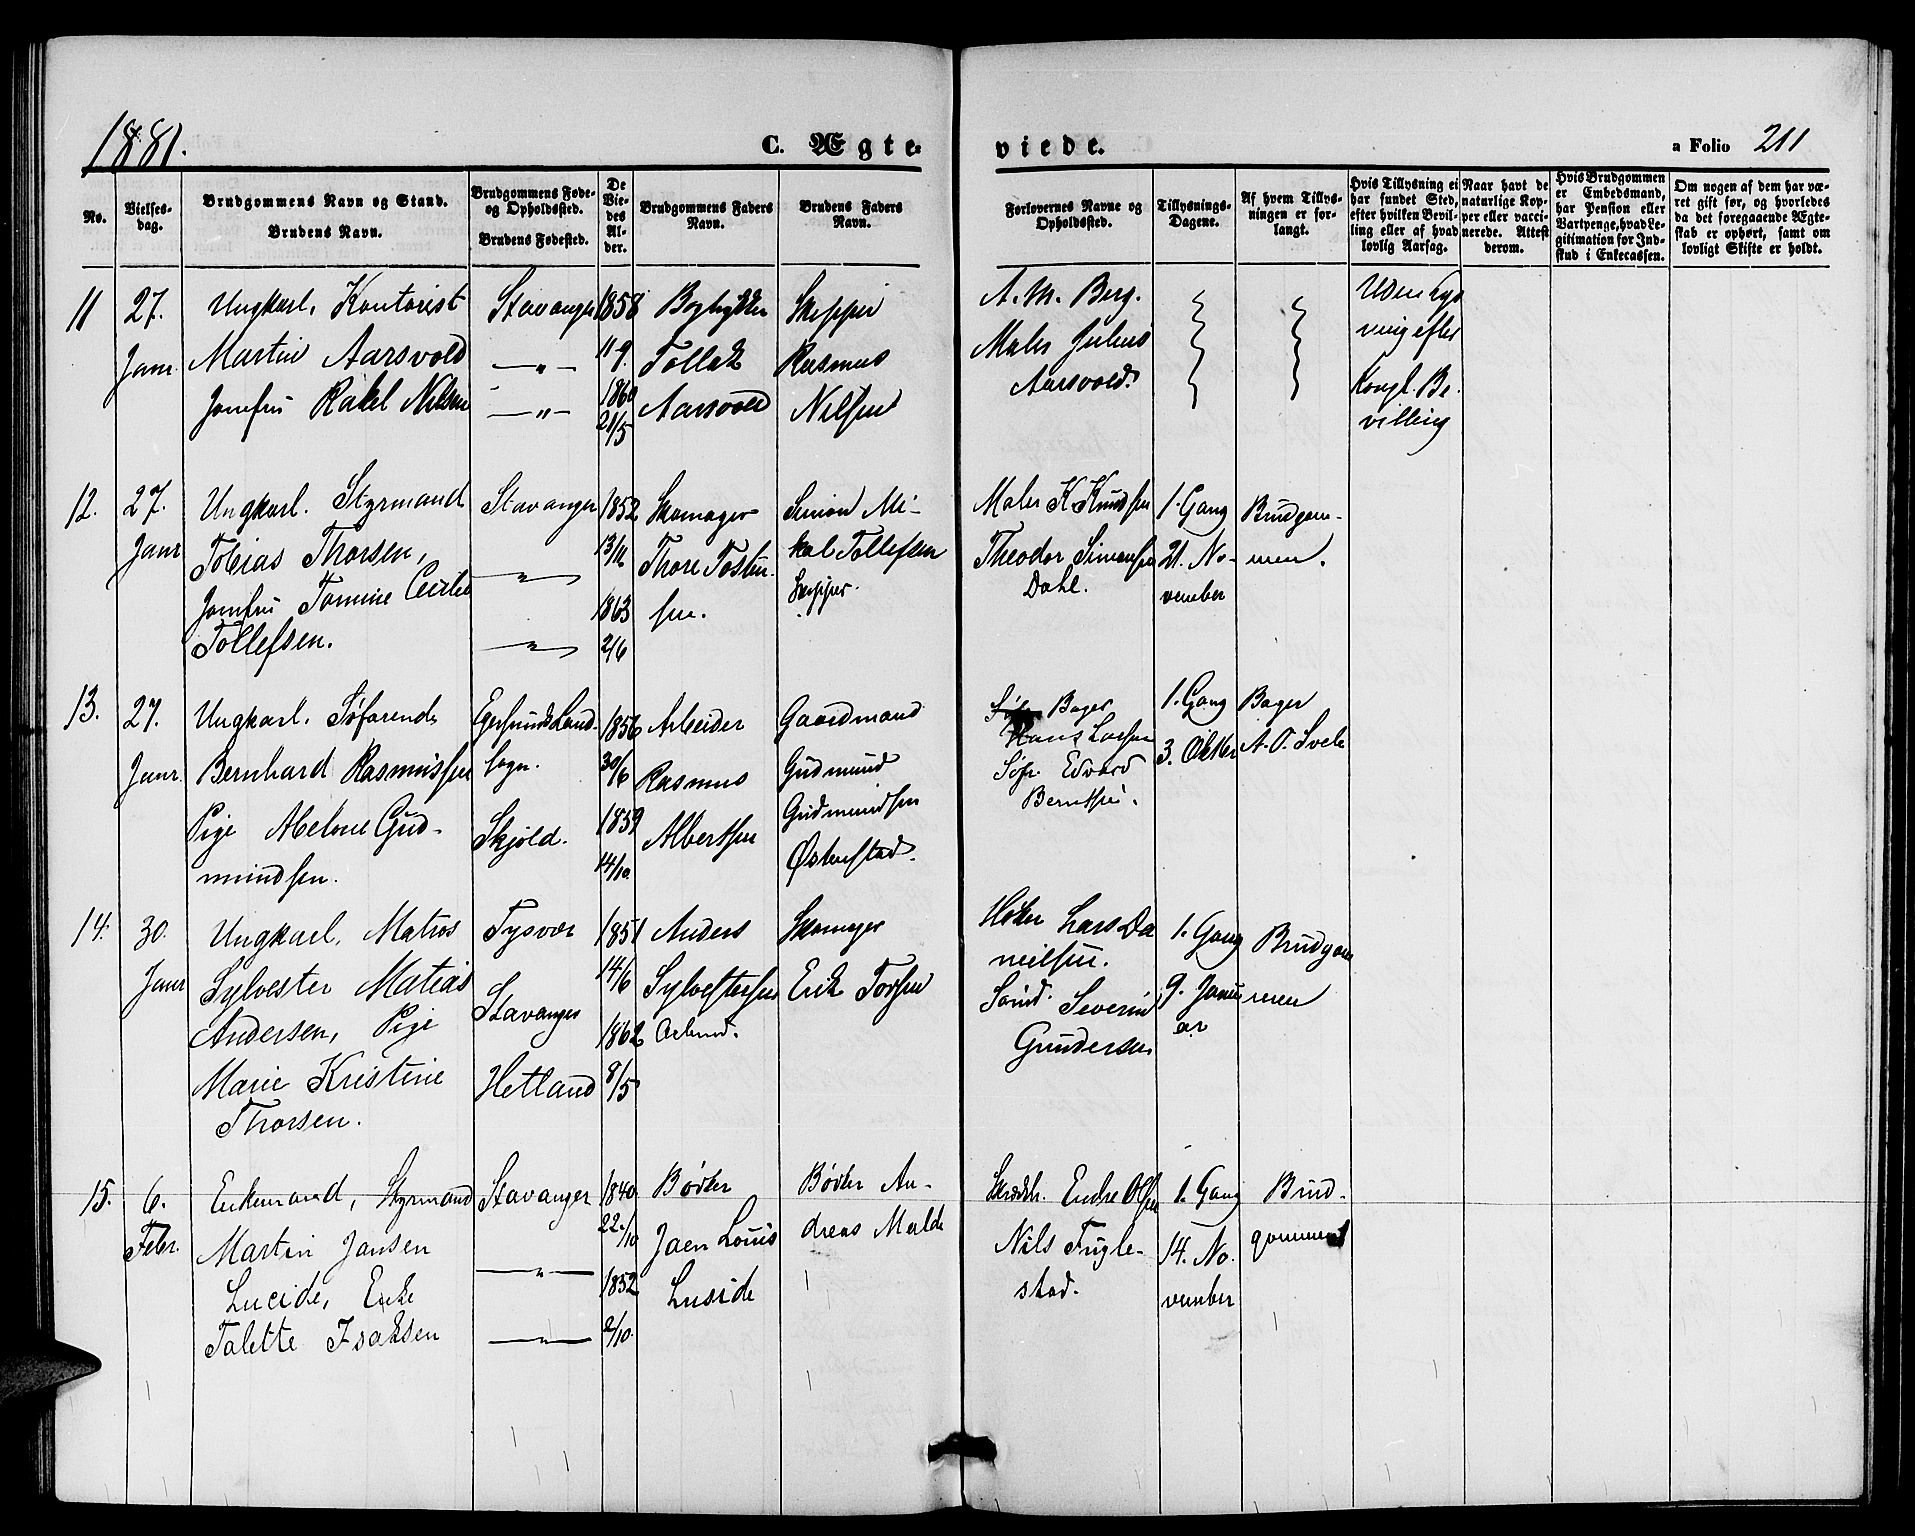 1881.
C. Ægte-
viede.
a Folio 211
No.
Vielses-
dag.
Brudgommens Navn og Stand.
Brudens Navn.
Brudgommens Føde-
og Opholdssted.
Brudens Fødested.
De
Vie-
des
Al-
der.
Brudgommens Faders
Navn.
Brudens Faders
Navn.
Forlovernes Navne og
Opholdssted.
Tillysnings-
Dagene.
Af hvem Tillys-
ningen er for-
langt.
Hvis Tillysning ei
har fundet Sted,
efter hvilken Bevil-
ling eller af hvad
lovlig Aarsag.
Naar havt de
naturlige Kop-
per eller vacci-
nerede. Attest
derom.
Hvis Brudgommen
er Embedsmand,
har Pension eller
Vartpenge, hvad Le-
gitimation for Ind-
skud i Enkecassen.
Om nogen af dem har væ-
ret gift før, og hvorledes
da det foregaaende Ægte-
skab er ophørt, samt om
lovligt Skifte er holdt.
11
27.
Janr.
Ungkarl, Kontorist
Martin Aarsvold
Jomfru Rakel Nilsen
Stavanger
—"—
—"—
1858
11-9.
1860
21/5
Tollak
Aarsvold
Skipper
Rasmus
Nilsen
A. M. Berg.
Maler Julius
Aarsvold.
Uden Lys
ning efter
Kongl. Be-
villing
12.
27.
Janr
Ungkarl. Styrmand
Tobias Thorsen,
Jomfru Tomine Cecilie
Tollefsen.
Stavanger
—"—
—"—
1852
13/11
1863
2/6
Skomager
Thore Tosten-
sen.
Simon Mi-
kal Tollefsen
Skipper.
Maler K. Knudsen
Theodor Simonsen
Dahl.
1. Gang
21. No-
vember
Brudgom-
men.
13.
27.
Janr.
Ungkarl. Søfarende
Bernhard Rasmussen
Pige Abelone Gud-
mundsen.
Egersunds Land-
sogn.
Skjold.
1856
30/6
1859
14/10.
Arbeider
Rasmus
Albertsen
Gaardmand
Gudmund
Gudmundsen
Østenstad.
Bager
Hans Larsen
Søfr. Edvard
Berntsen.
1. Gang
3. Oktber
Bager
A. O. Svele
14.
30.
Janr
Ungkarl, Matros
Sylvester Matias
Andersen, Pige
Marie Kristine
Thorsen.
Tysvær
Stavanger
Hetland
1851
14/6
1862
8/5
Anders
Sylvestersen
Arbmd.
Skomager
Erik Torsen
Høker Lars Da
nielsen.
Severin
Gundersen
1. Gang
9. Janu
ar
Brudgom
men
15.
6.
Febr.
Enkemand, Styrmand
Martin Jansen
Lucide, Enke
Talette Isaksen
Stavanger
—"—
—"—
1840
22/10
1852
2/10.
Bødker
Jaen Louis
Luside
Bødker An-
dreas Malde
Skrædr. Endre Olsen
Nils Fugle-
stad.
1. Gang
14. No-
vember
Brud-
gommen